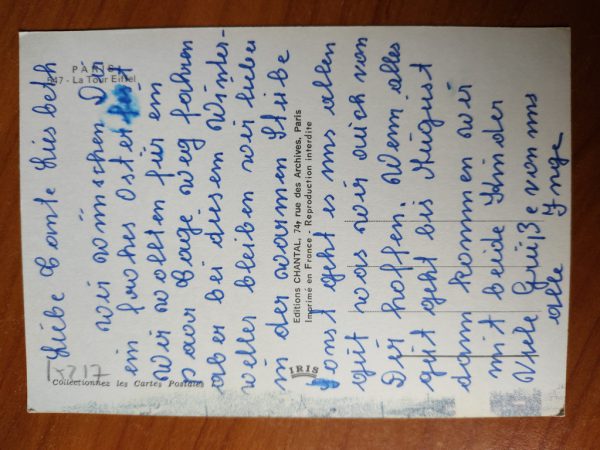 PARIS
547 - La Tour Eiffel
Liebe Tante Lisbeth
wir wünschen Dir
ein frohes Osterfest
Wir wollten für ein
paar Tage weg fahren
aber bei diesem Winter-
wetter bleiben wir lieber
in der warmen Stube
Sonst geht es uns allen
gut was wir auch von
Dir hoffen. Wenn alles
gut geht bis August
dann kommen wir
mit beide Kinder
Viele Grüße von uns
alle Inge
Editions CHANTAL, 74, rue des Archives, Paris
Imprimé en France - Reproduction interdite
IRIS
Collectionnez les Cartes Postales
1x217